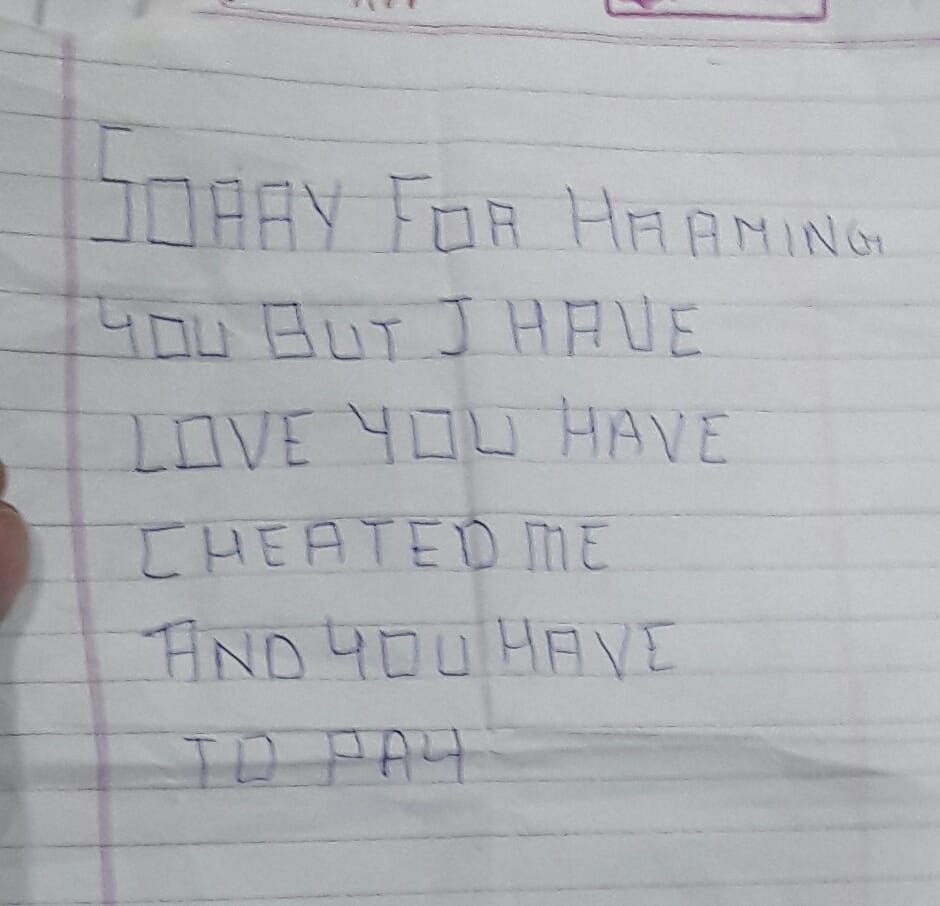 SORRY FOR HARMING
YOU BUT I HAVE
LOVE YOU HAVE
CHEATED ME
AND YOU HAVE
TO PAY